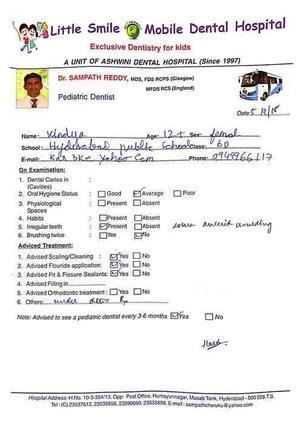 Little Smile Mobile Dental Hospital
Exclusive Dentistry for kids
A UNIT OF ASHWINI DENTAL HOSPITAL (Since 1997)
Dr. SAMPATH REDDY, MDS, FDS RCPS (Glasgow)
MFDS RCS (England)
Pediatric Dentist
Date:
Name: Age: 12+ Sex: femal
School: Hyderabad public School Class: 6D
E-mail: Yahoo Com Phone: 9949966117
On Examination:
1. Dental Caries in :
(Cavities)
2. Oral Hygiene Status : Good Average Poor
3. Physiological : Present Absent
Spaces
4. Habits : Present Absent
5. Irregular teeth : Present Absent
6. Brushing twice : Yes No
Adviced Treatment:
1. Advised Scaling/Cleaning : Yes No
2. Advised Flouride application: Yes No
3. Advised Pit & Fissure Sealants: Yes No
4. Advised Filling in
5. Advised Orthodontic treatment : Yes No
6. Others: under
Note: Advised to see a pediatric dentist every 3-6 months Yes No
Hospital Address-H.No. 10-3-304/13, Opp. Post Office, Humayunnagar, Masab Tank, Hyderabad - 500 028.T.S.
Tel : (C) 23537612, 23535656, 23590690, 23535658, E-mail : sampathcheruku@yahoo.com